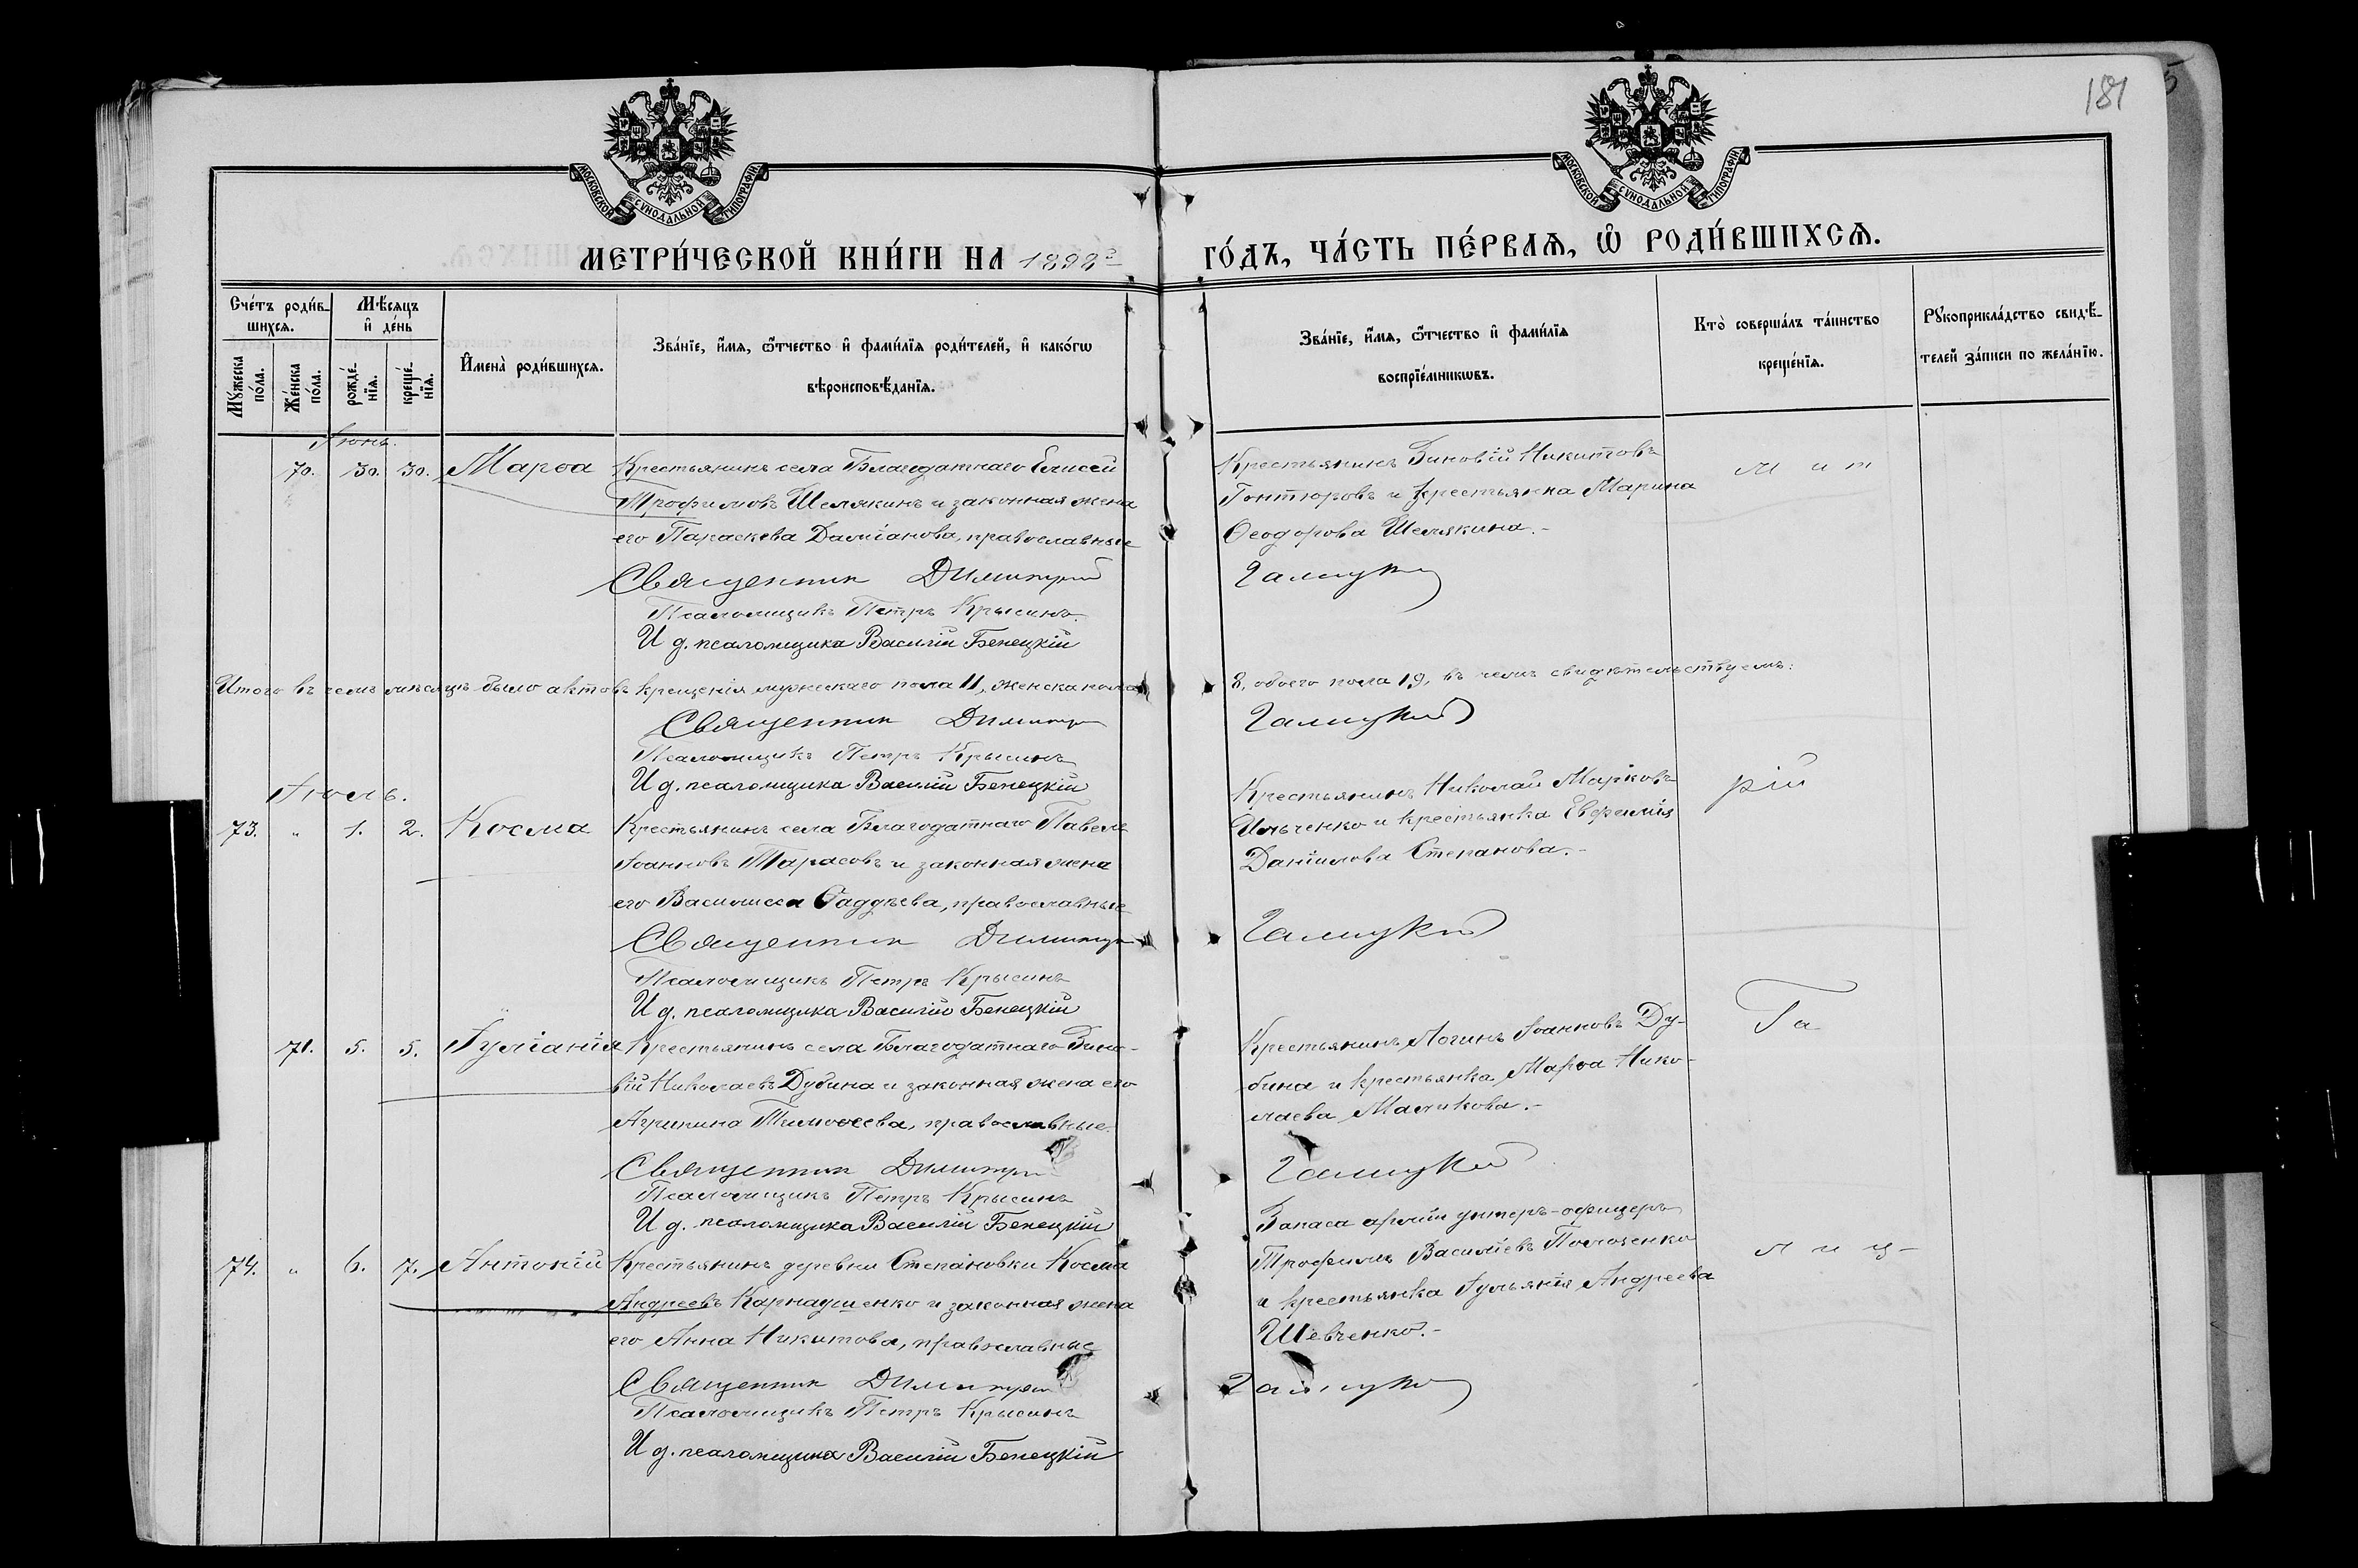 181
МОСКОВСКОЙ СѴНОДАЛЬНОЙ ТИПОГРАФІИ.
МОСКОВСКОЙ СѴНОДАЛЬНОЙ ТИПОГРАФІИ.
МЕТРИ́ЧЕСКОЙ КНИ́ГИ НА 1898 г.
ГО́ДЪ, ЧА́СТЬ ПЕ́РВАѦ, Ѽ РОДИ́ВШИХСѦ.
Сче́тъ роди́в-
шихсѧ.
Мꙋ́жеска по́ла.
Же́нска по́ла.
Мѣ́сѧцъ
и҆ де́нь
рожде́-
нїѧ.
креще́-
нїѧ.
И҆мена̀ роди́вшихсѧ.
Зва́нїе, и҆́мѧ, ѻ҆́тчество и҆ фами́лїѧ роди́телей, и҆ како́гѡ
вѣроисповѣ́данїѧ.
Зва́нїе, и҆́мѧ, ѻ҆́тчество и҆ фами́лїѧ
воспрїе́мникѡвъ.
Кто̀ соверша́лъ та́инство
креще́нїѧ.
Рꙋкоприкла́дство свидѣ́-
телей за́писи по жела́нїю.
Іюнь.
70. 30. 30. Марѳа Крестьянинъ села Благодатнаго Елисей
Трофимовъ Шелякинъ и законная жена
его Параскева Даміанова, православные
Крестьянинъ Зиновій Никитовъ
Гонтюровъ и крестьянка Марина
Ѳеодорова Шелякина.-
м и т
Священникъ Димитрій Галицкій
Псаломщикъ Петръ Крысинъ
И д. псаломщика Василій Бенецкій
Итого въ семъ мѣсяцѣ было актовъ крещенія мужескаго пола 11, женска пола 8, обоего пола 19, въ чемъ свидѣтельствуемъ:
Священникъ Димитрій Галицкій
Псаломщикъ Петръ Крысинъ
И д. псаломщика Василій Бенецкій
Іюль.
73. " 1. 2. Косма Крестьянинъ села Благодатнаго Павелъ
Іоанновъ Тарасовъ и законная жена
его Василисса Ѳаддѣева, православные
Крестьянинъ Николай Марковъ
Ильченко и крестьянка Евфемія
Даніилова Степанова.-
рій
Священникъ Димитрій Галицкій
Псаломщикъ Петръ Крысинъ
И д. псаломщика Василій Бенецкій
71. 5. 5. Іуліанія Крестьянинъ села Благодатнаго Зино-
вій Николаевъ Дубина и законная жена его
Агрипина Тимоѳеева, православные.
Крестьянинъ Логинъ Іоанновъ Ду-
бина и крестьянка Марѳа Нико-
лаева Маликова.-
Га
Священникъ Димитрій Галицкій
Псаломщикъ Петръ Крысинъ
И д. псаломщика Василій Бенецкій
74. " 6. 7. Антоній Крестьянинъ деревни Степановки Косма
Андреевъ Карнаушенко и законная жена
его Анна Никитова, православные
Запаса арміи унтеръ-офицеръ
Трофимъ Василіевъ
и крестьянка Іульянія Андреева
Шевченко.-
л и ц-
Священникъ Димитрій Галицкій
Псаломщикъ Петръ Крысинъ
И д. псаломщика Василій Бенецкій